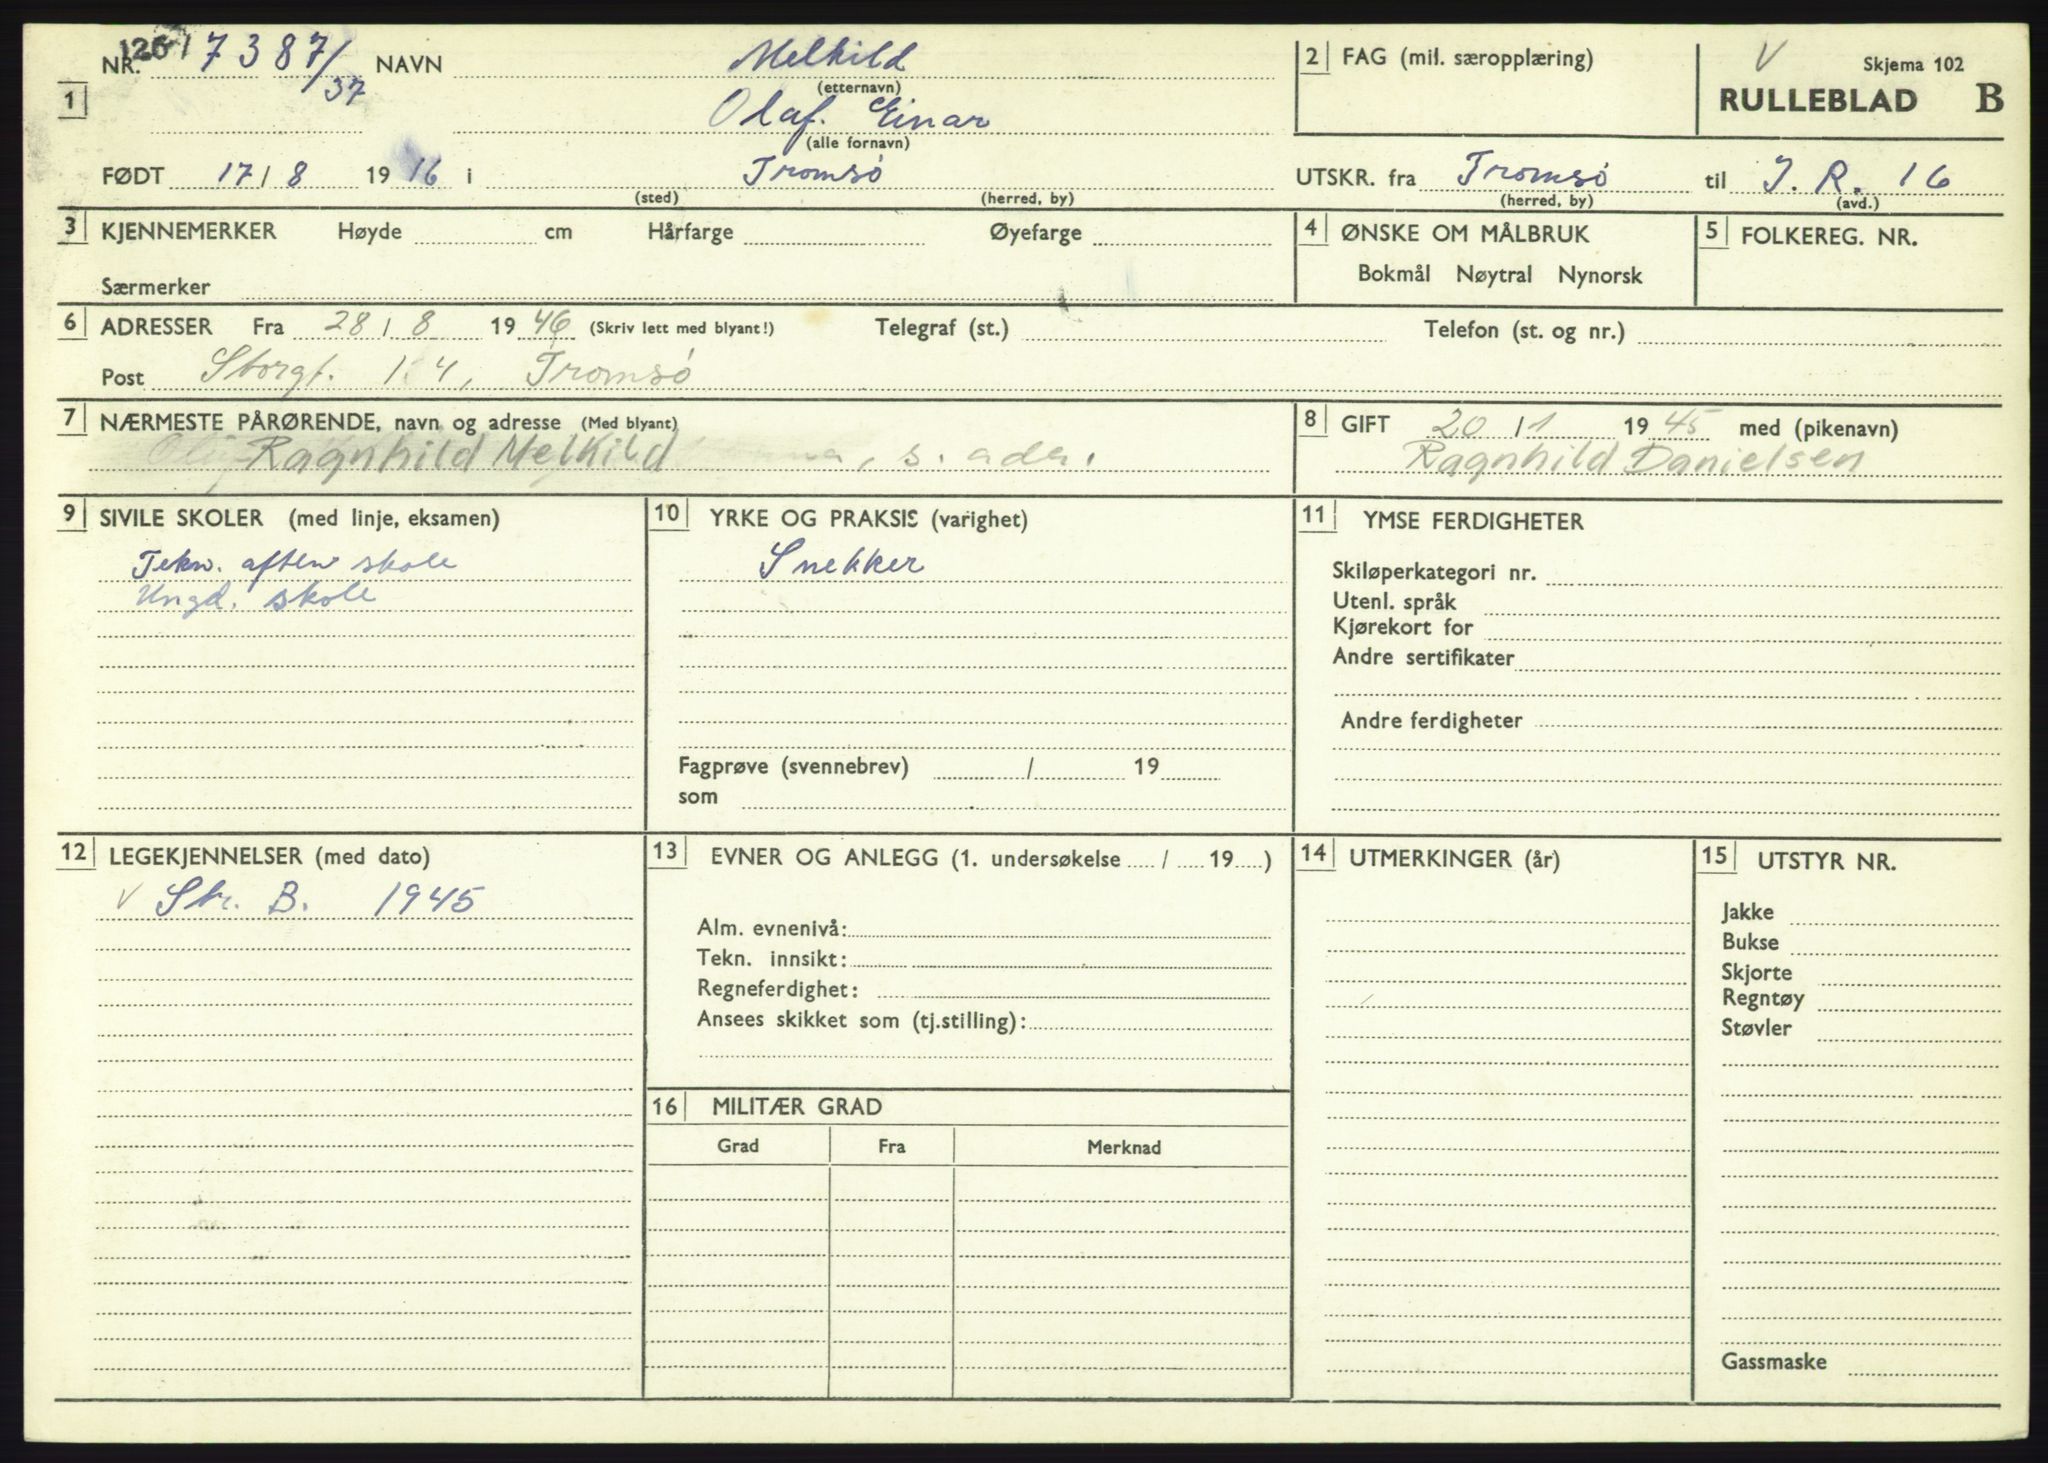 NR. 1261 7387/37 NAVN Melkild 2 FAG (mil. særopplæring) V Skjema 102
(etternavn)
1 Olaf. Einar RULLEBLAD B
(alle fornavn)
FØDT 17/8 1916 i Tromsø UTSKR. fra Tromsø til J. R. 16
(sted) (herred, by) (herred, by) (avd.)
3 KJENNEMERKER Høyde cm Hårfarge Øyefarge 4 ØNSKE OM MÅLBRUK 5 FOLKEREG. NR.
Bokmål Nøytral Nynorsk
Særmerker
6 ADRESSER Fra 28/8 1946 (Skriv lett med blyant!) Telegraf (st.) Telefon (st. og nr.)
Post Storgt. 1 4, Tromsø
7 NÆRMESTE PÅRØRENDE, navn og adresse (Med blyant) 8 GIFT 20/1 1945 med (pikenavn)
Ragnhild Melkild , s. adr. Ragnhild Danielsen
9 SIVILE SKOLER (med linje, eksamen) 10 YRKE OG PRAKSIS (varighet) 11 YMSE FERDIGHETER
Tekn. aften skole Snekker Skiløperkategori nr.
Ungd. skole Utenl. språk
Kjørekort for
Andre sertifikater
Andre ferdigheter
Fagprøve (svennebrev) / 19
som
12 LEGEKJENNELSER (med dato) 13 EVNER OG ANLEGG (1. undersøkelse / 19 ) 14 UTMERKINGER (år) 15 UTSTYR NR.
V Str. B. 1945 Jakke
Alm. evnenivå: Bukse
Tekn. innsikt: Skjorte
Regneferdighet: Regntøy
Ansees skikket som (tj.stilling): Støvler
16 MILITÆR GRAD
Grad Fra Merknad
Gassmaske